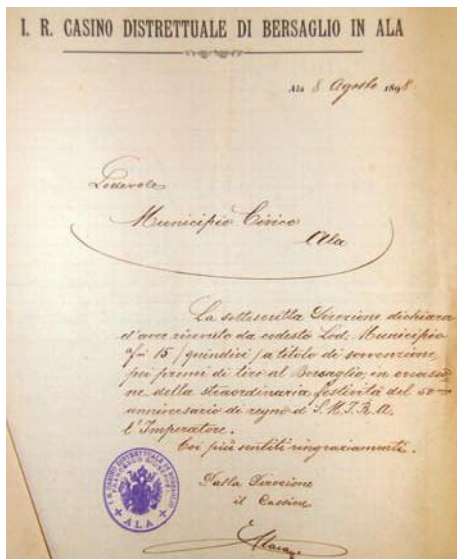 I. R. CASINO DISTRETTUALE DI BERSAGLIO IN ALA
Ala 8 Agosto 1898
Lodevole
Municipio Civico
Ala
La sottoscritta Direzione dichiara
d'aver ricevuto da codesto Lod. Municipio
15 / quindici / a titolo di sovvenzione
per premi di tiro al Bersaglio, in occasio
ne della straordinaria festività del 50
anniversario di regno di S. M. I. R. A.
l'Imperatore.
Coi più sentiti ringraziamenti.
Dalla Direzione
il Cassiere
I. R. CASINO DISTRETTUALE DI BERSAGLIO
ALA